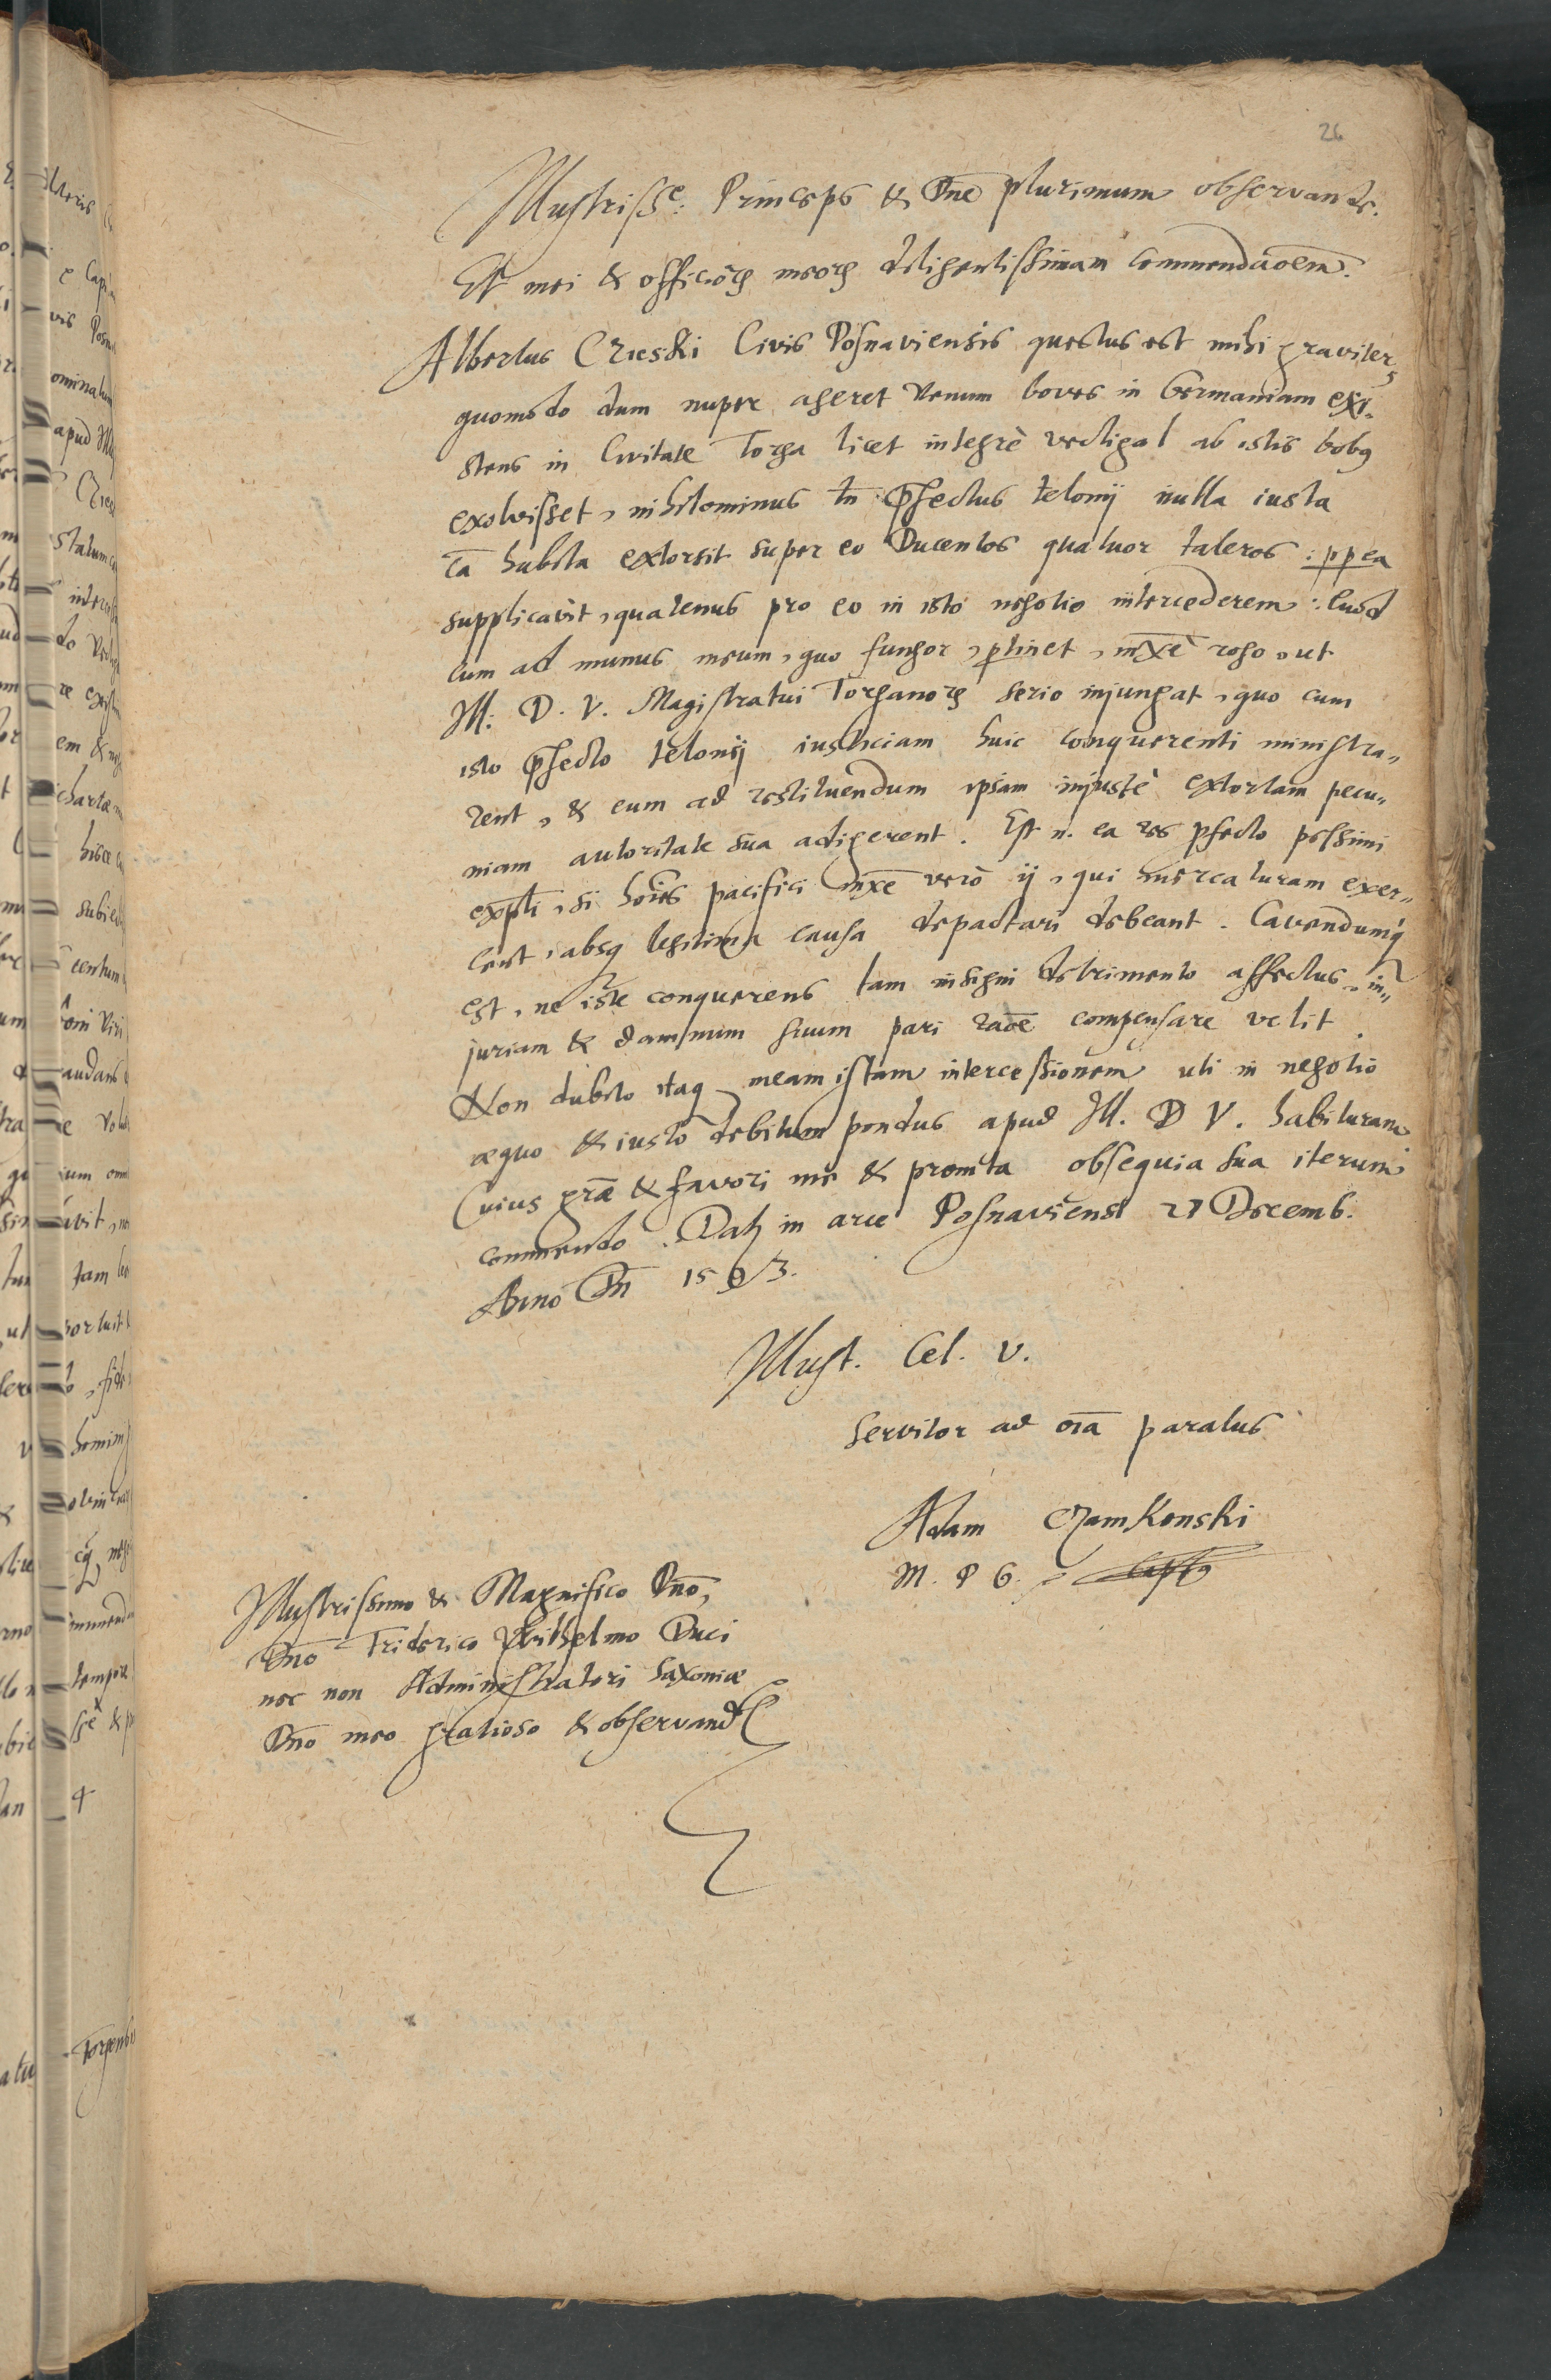 26
Illustrisse: Princeps & Dne plurimum observande.
Et mei & officiorꝫ meorꝫ diligentissimam Commendãoem.
Albertus Czieski Civis Posnaviensis questus est mihi graviter,
quomodo dum nuper ageret venum boves in Germaniam exi-
stens in Civitate Torga licet integrè vectigal ab istis bobꝰ
exolvisset, nihilominus tñ p̃fectus telonij nulla iusta
cã habita extorsit super eo Ducentos quatuor taleros: ppea
supplicavit, quatenus pro eo in isto negotio intercederem: Quod
cum ad munus meum, quo fungor, ptinet, mx̃e rogo, ut
Ill: D. V. Magistratui Torganorꝫ serio injungat, quo cum
isto p̃fecto telonij iusticiam huic conquerenti ministra„
rent, & eum ad restituendum ipsam injustè extortam pecu„
niam autoritate sua adigerent. Est n. ea res pfecto pessimi
exp̃li, si hoĩes pacifici mx̃e verò ij, qui mercaturam exer„
cent, absqꝫ legitima causa depactari debeant. Cavendumqꝫ
est, ne iste conquerens tam insigni detrimento affectus, in„
juriam & damnum suum pari raõe compensare velit.
Non dubito itaqꝫ meam istam intercessionem uti in negotio
æquo & iusto debitum pondus apud Ill. D V. habituram
Cuius grã & favori me & promta obsequia sua iterum
commendo. Datꝫ in arce Posnaviensi 27 Decemb.
Anno Dñ 1593.
Illust. Cel. V.
Servitor ad oĩa paratus
Adam Czarnkonski
M. P G.
Illustrissimo & Magnifico Dño,
Dño Friderico Wilhelmo Duci
nec non Administratori Saxoniæ
Dño meo gratioso & observand